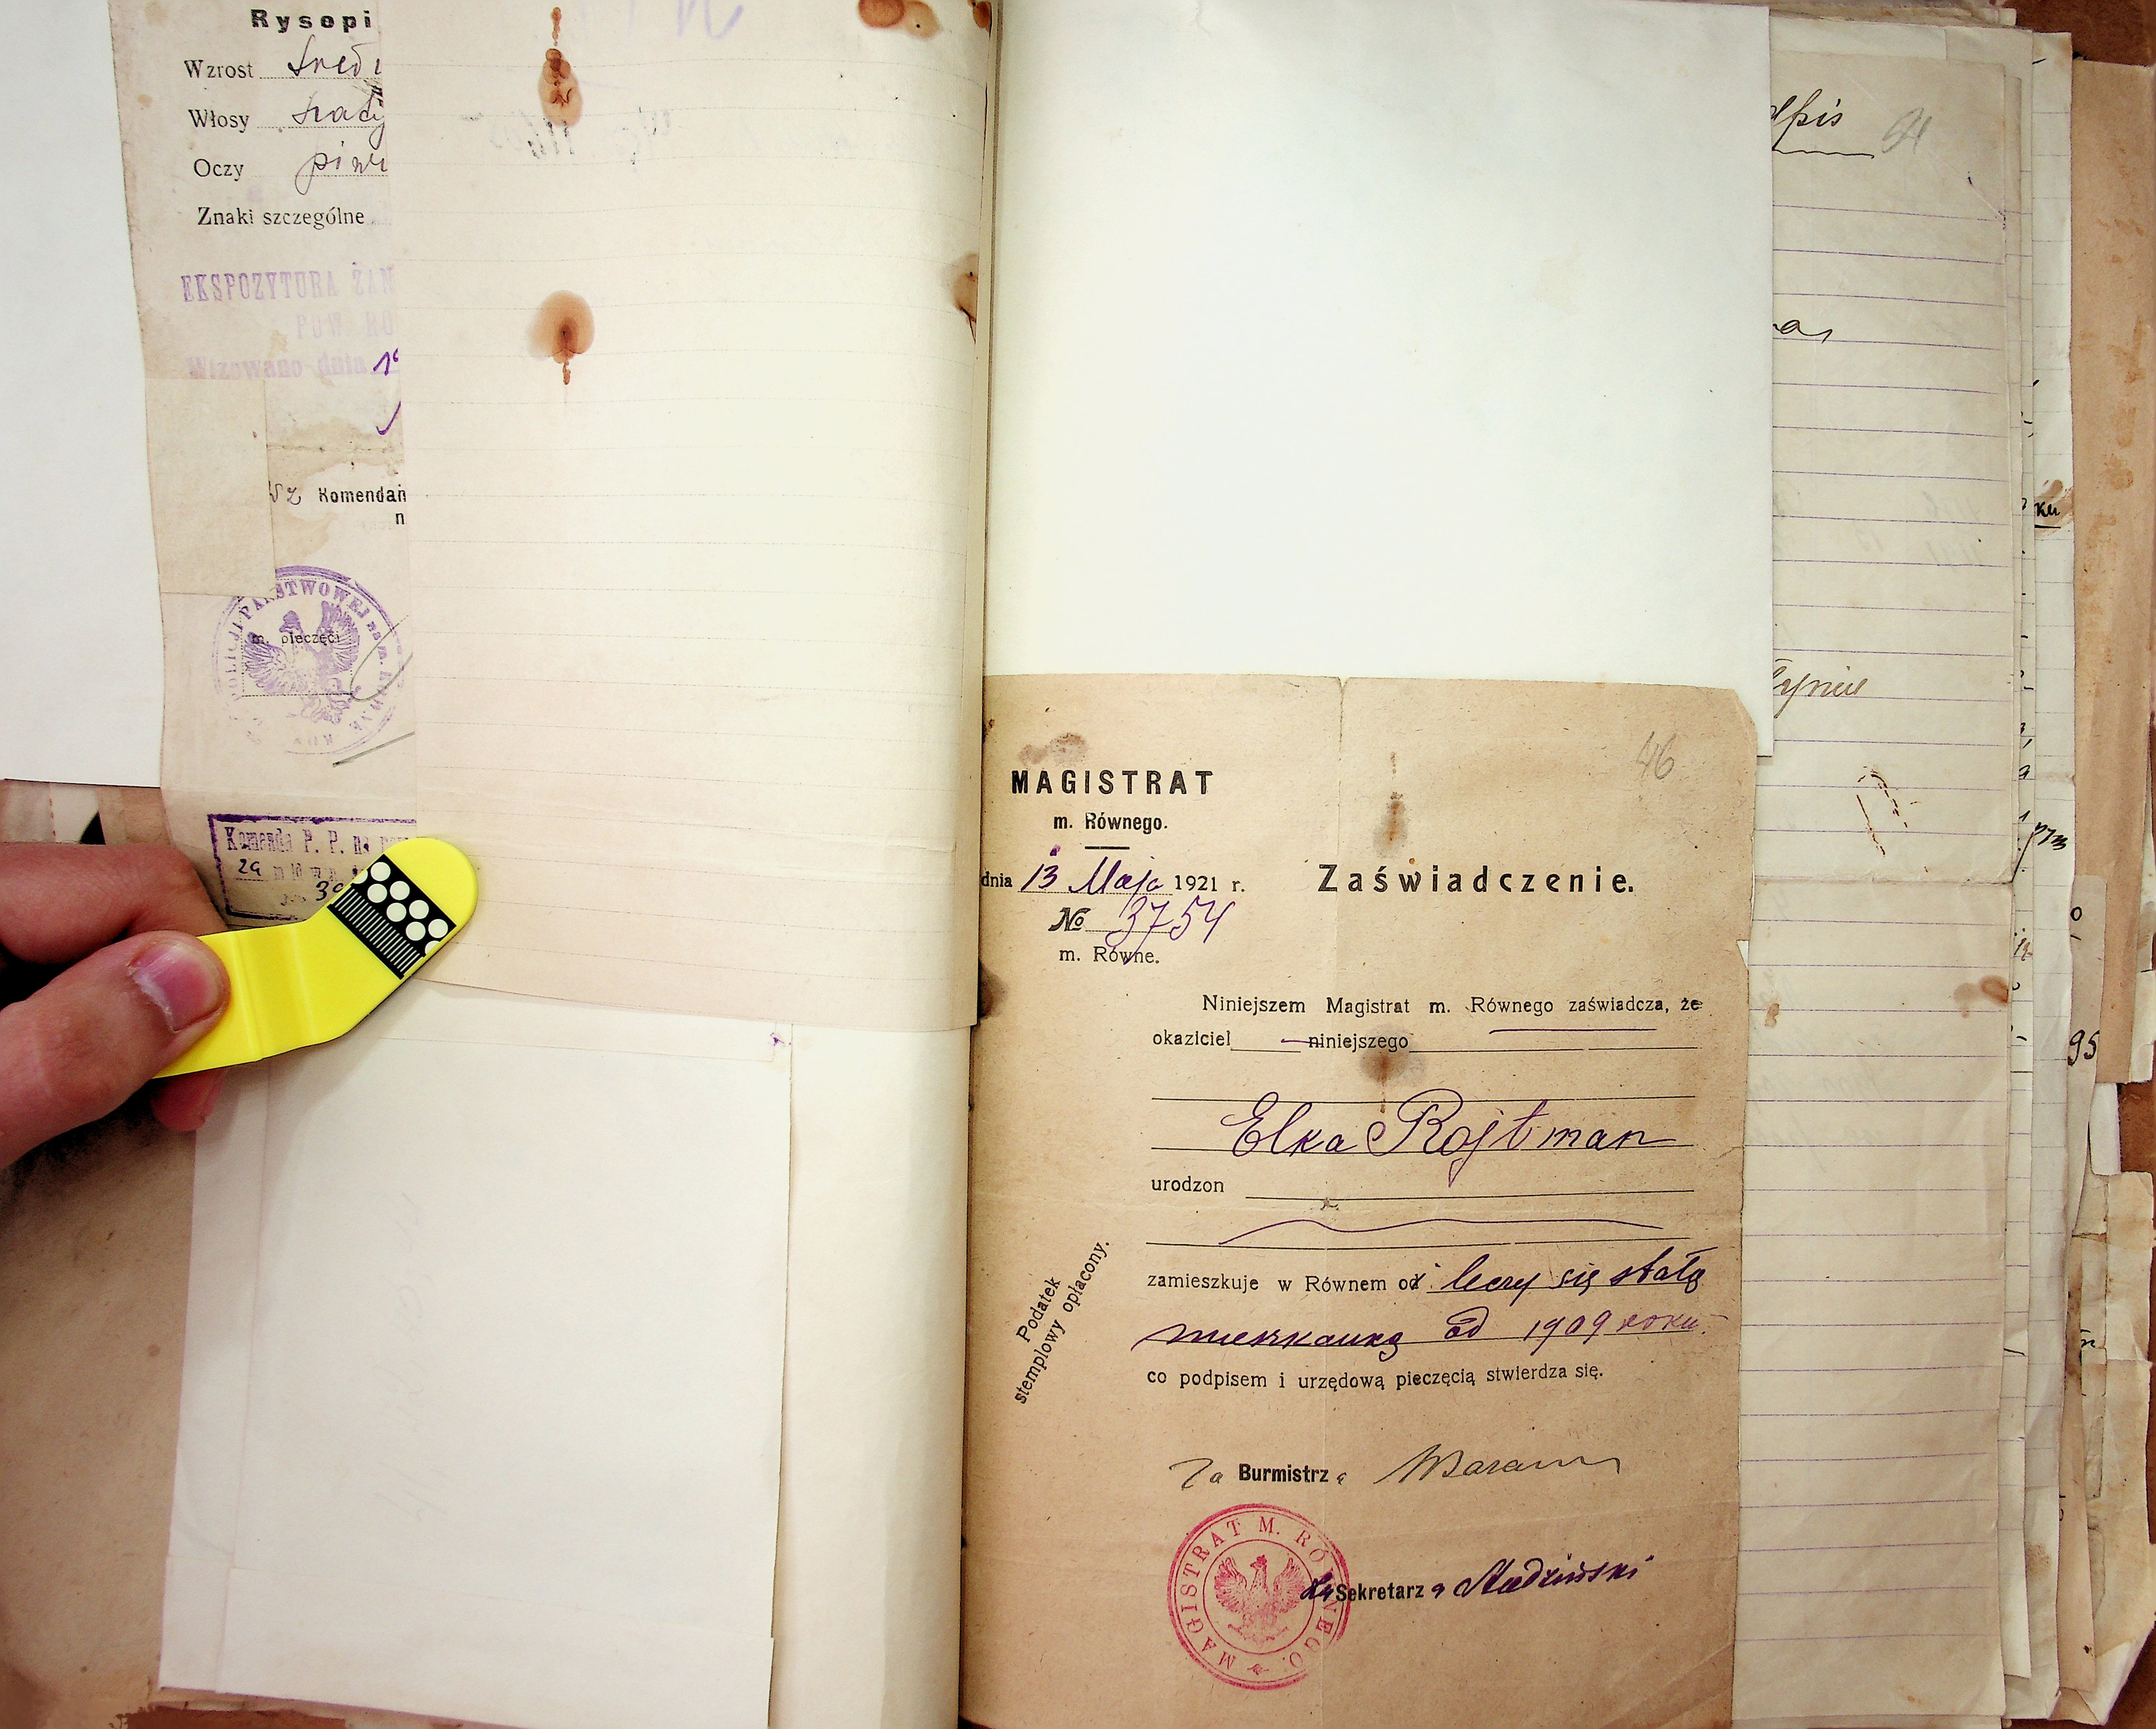 Rysopi
Wzrost Średn
Włosy
Oczy piw
Znaki szczególne
EKSPOZYTURA ŻAN
POW RO
Wizowano dnia 19
Wz Komendan
n
POLICJI PAŃSTWOWEJ na m. RÓWNE
m. pieczęci
Komenda P. P. na
29
MAGISTRAT
m. Równego.
dnia 13 Maja 1921 r.
№ 3754
m. Równe.
46
Zaświadczenie.
Niniejszem Magistrat m. Równego zaświadcza, że
okaziciel niniejszego
Elka Rojtman
urodzon
zamieszkuje w Równem od liczy się stałą
mieszkanką od 1909 roku.
co podpisem i urzędową pieczęcią stwierdza się.
Podatek
stemplowy opłacony.
Za Burmistrza
MAGISTRAT M. RÓWNEGO.
Za Sekretarza
91
ku
95